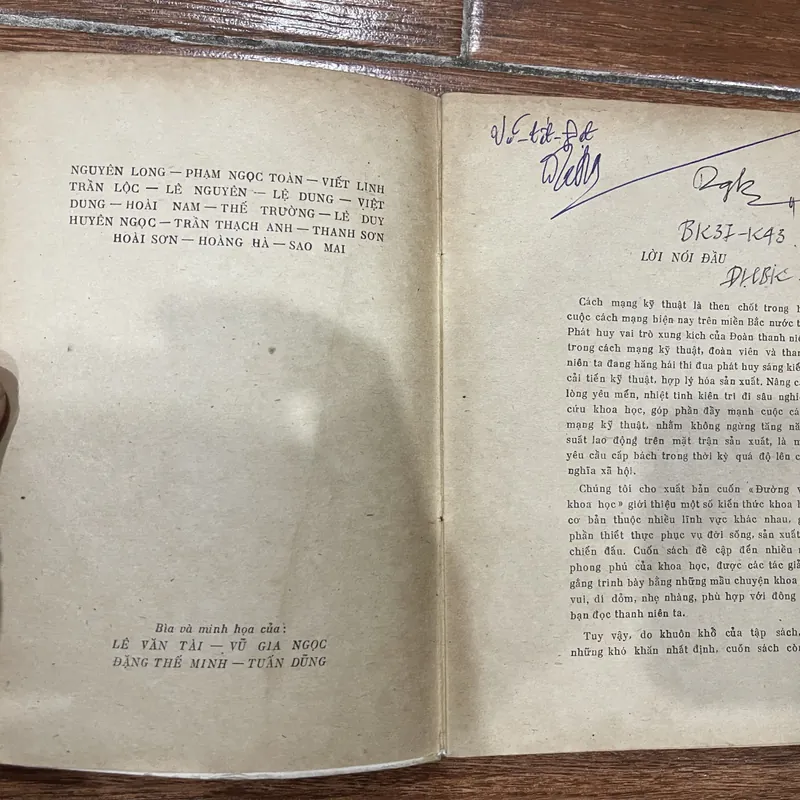 NGUYÊN LONG — PHẠM NGỌC TOÀN — VIẾT LINH
TRẦN LỘC — LÊ NGUYÊN — LỆ DUNG — VIỆT
DUNG — HOÀI NAM — THẾ TRƯỜNG — LÊ DUY
HUYỀN NGỌC — TRẦN THẠCH ANH — THANH SƠN
HOÀI SƠN — HOÀNG HÀ — SAO MAI
Bìa và minh họa của:
LÊ VĂN TÀI — VŨ GIA NGỌC
ĐẶNG THẾ MINH — TUẤN DŨNG
BK37-K43
LỜI NÓI ĐẦU
ĐHBK
Cách mạng kỹ thuật là then chốt trong
cuộc cách mạng hiện nay trên miền Bắc nước
Phát huy vai trò xung kích của Đoàn thanh
trong cách mạng kỹ thuật, đoàn viên và
niên ta đang hăng hái thi đua phát huy sáng
cải tiến kỹ thuật, hợp lý hóa sản xuất. Nâng
lòng yêu mến, nhiệt tình kiên trì đi sâu
cứu khoa học, góp phần đẩy mạnh cuộc
mạng kỹ thuật, nhằm không ngừng tăng
suất lao động trên mặt trận sản xuất, là
yêu cầu cấp bách trong thời kỳ quá độ lên
nghĩa xã hội.
Chúng tôi cho xuất bản cuốn «Đường
khoa học» giới thiệu một số kiến thức khoa
cơ bản thuộc nhiều lĩnh vực khác nhau,
phần thiết thực phục vụ đời sống, sản xuất
chiến đấu. Cuốn sách đề cập đến nhiều
phong phú của khoa học, được các tác
gắng trình bày bằng những mẩu chuyện khoa
vui, dí dỏm, nhẹ nhàng, phù hợp với đông
bạn đọc thanh niên ta.
Tuy vậy, do khuôn khổ của tập sách,
những khó khăn nhất định, cuốn sách